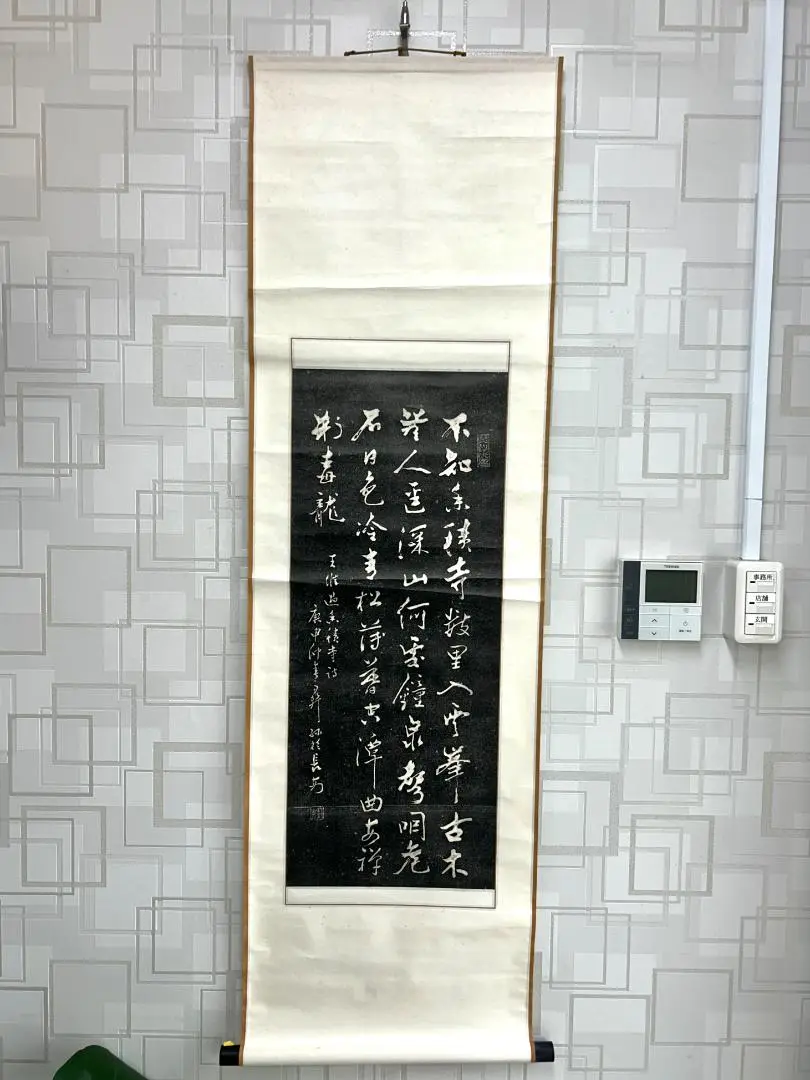 不知香積寺數里入雲峯古木
無人逕深山何處鐘泉聲咽危
石日色冷青松薄暮空潭曲安禪
制毒龍
王維過香積寺詩
庚申仲春 於長安
TOSHIBA
事務所
店舗
玄関